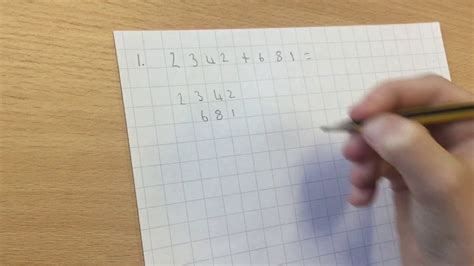 1. 2342+681=
2342
681